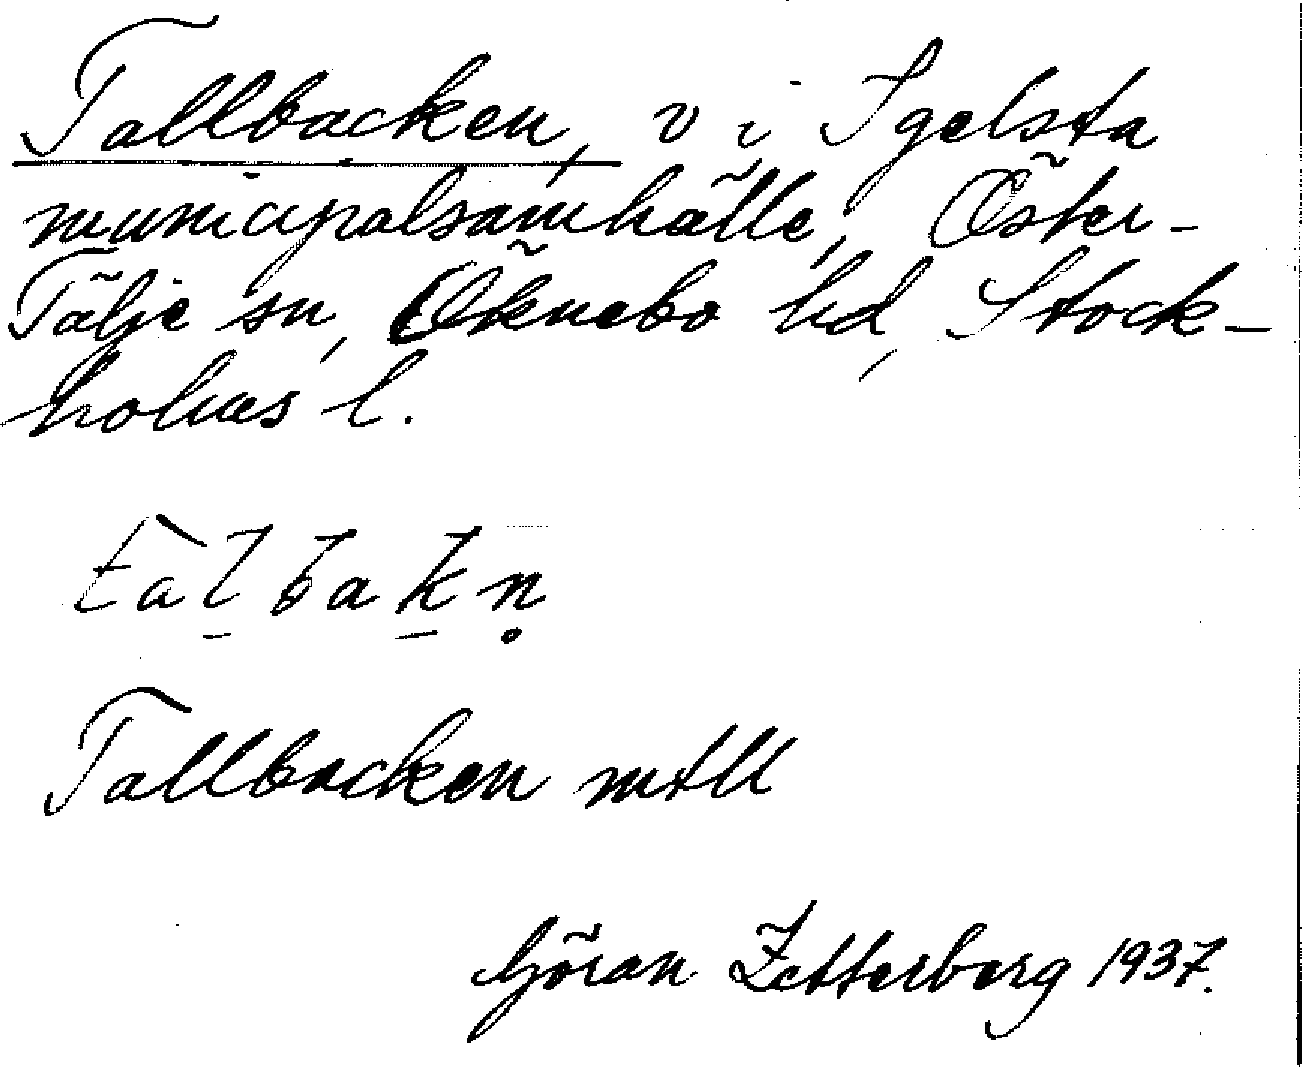 Tallbacken, v i Igelsta
municipalsamhälle, Öster-
Tälje sn, Öknebo hd, Stock-
holms l.
talbakn̥
Tallbacken mtll
Göran Zetterberg 1937.